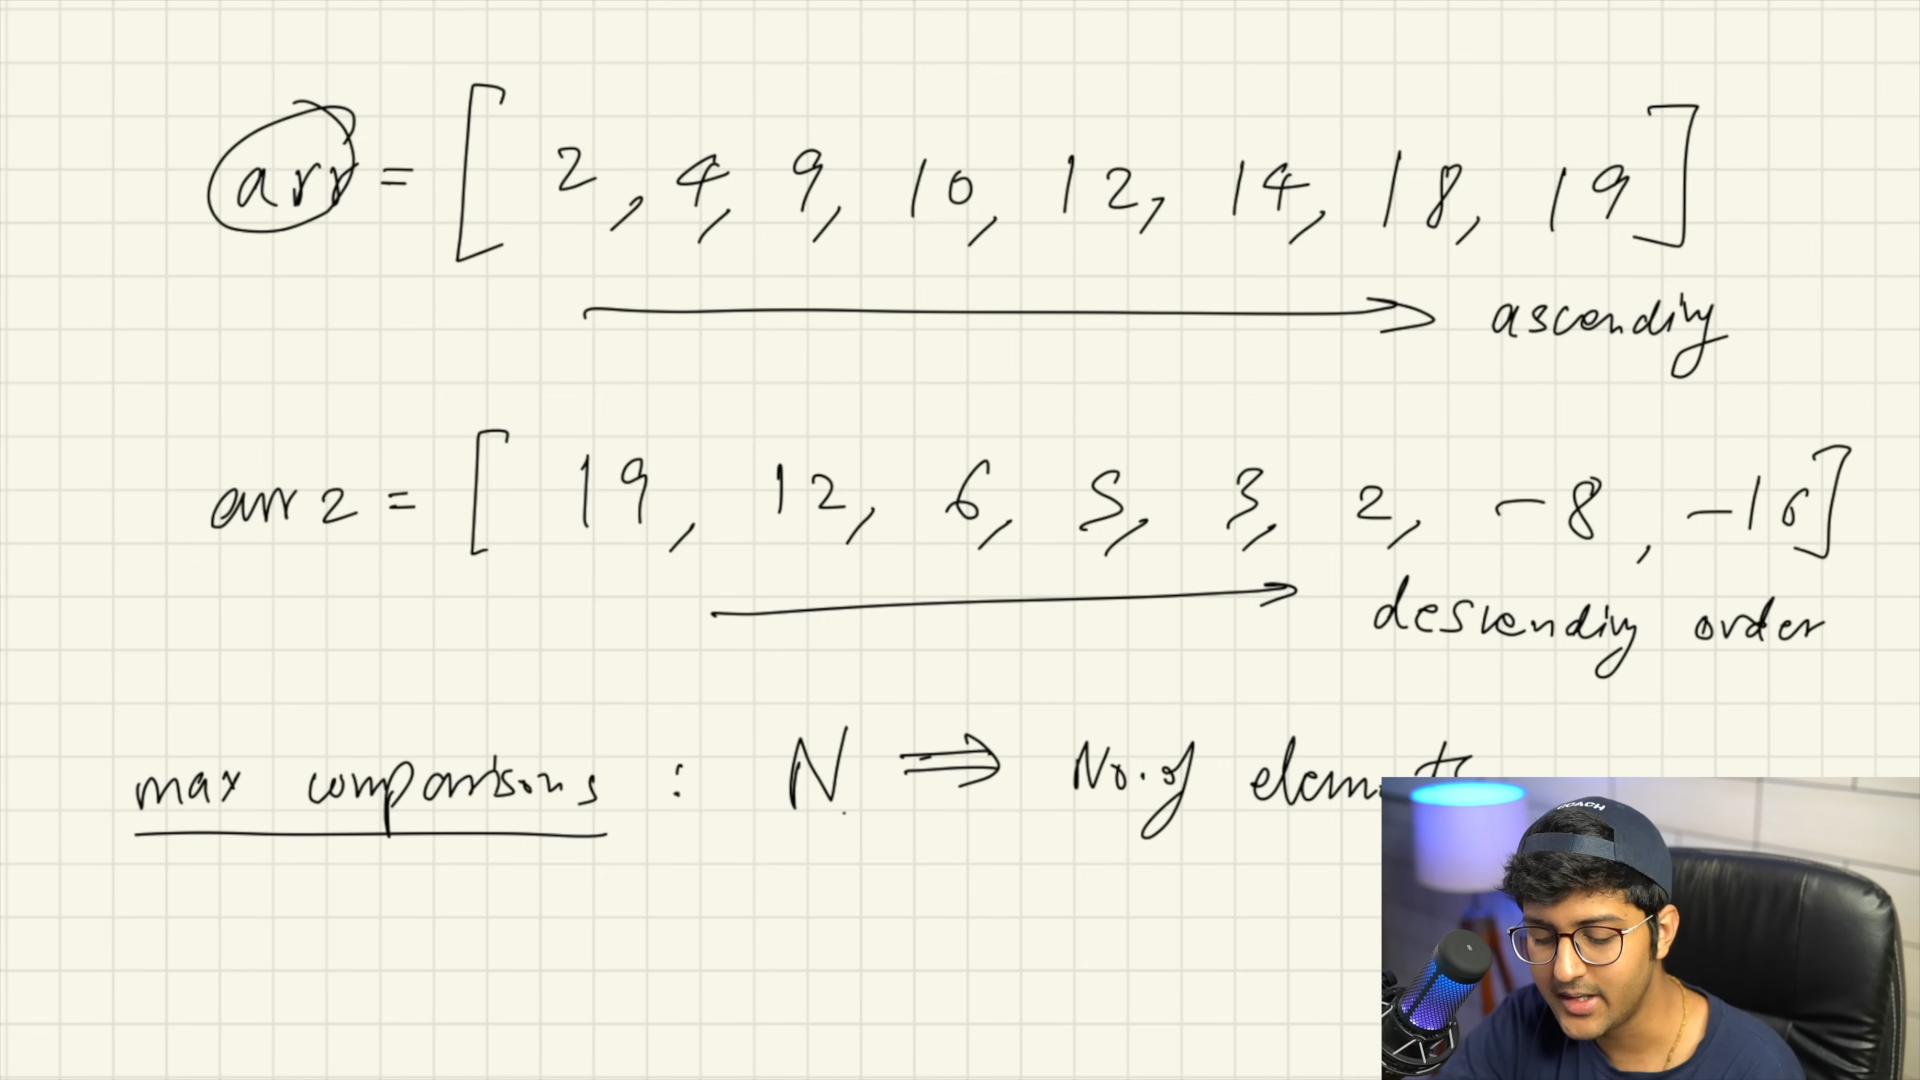 arr = [ 2, 4, 9, 10, 12, 14, 18, 19 ]
ascending
arr 2 = [ 19, 12, 6, 5, 3, 2, -8, -16 ]
descending order
max comparisons : N ⇒ No. of elements
COACH